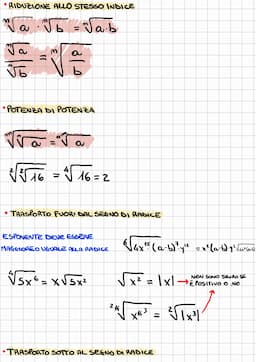 • RIDUZIONE ALLO STESSO INDICE
ᵐ√a · ᵐ√b = ᵐ√a·b
ᵐ√a / ᵐ√b = ᵐ√(a/b)
• POTENZA DI POTENZA
√16 = ⁴√16 = 2
• TRASPORTO FUORI DAL SEGNO DI RADICE
ESPONENTE DEVE ESSERE
MAGGIORE O UGUALE ALLA RADICE
⁴√5x⁶ = x√5x²
√x² = |x| → NON SONO SICURO SE
È POSITIVO O NO
= ²√|x³|
• TRASPORTO SOTTO AL SEGNO DI RADICE